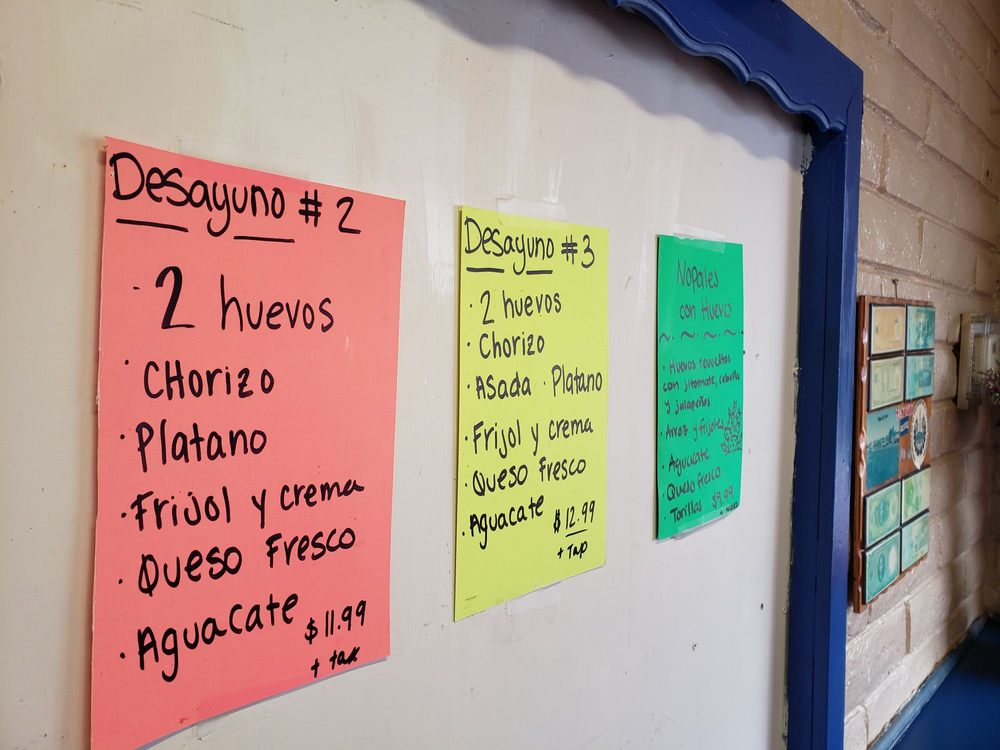 Desayuno #2
· 2 huevos
· CHorizo
· Platano
· Frijol y crema
· Queso Fresco
· Aguacate $11.99
+ tax
Desayuno #3
· 2 huevos
· Chorizo
· Asada · Platano
· Frijol y crema
· Queso Fresco
· Aguacate $12.99
+ tax
Nopales
con Huevo
· Huevos revueltos
con jitomate, cebolla
y jalapeños
· Arroz y frijoles
· Aguacate
· Queso fresco
· Tortillas $9.99
+ tax